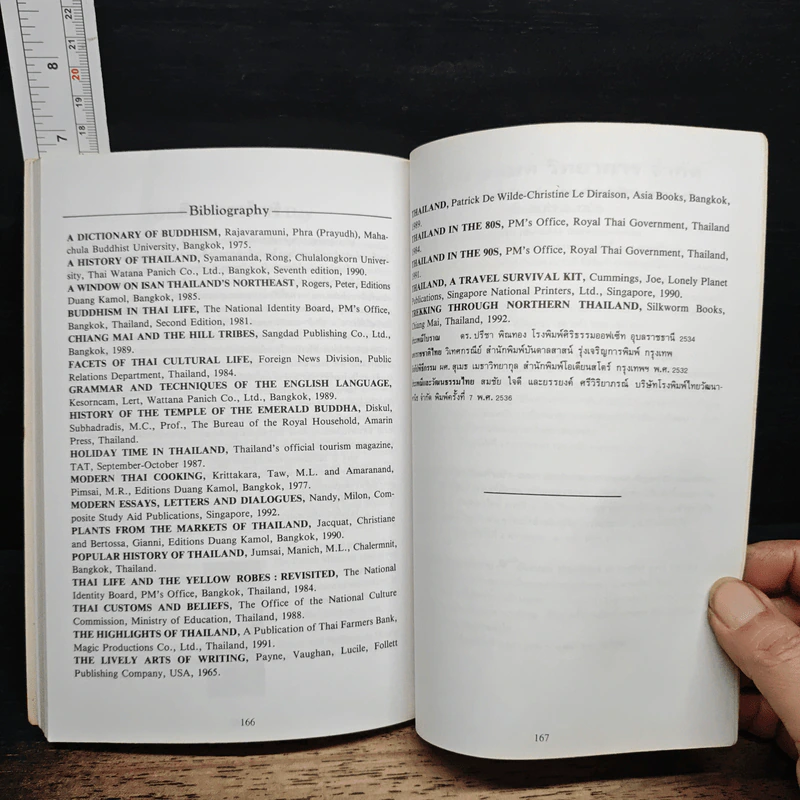 8
7
22
21
20
19
18
Bibliography
A DICTIONARY OF BUDDHISM, Rajavaramuni, Phra (Prayudh), Maha-
chula Buddhist University, Bangkok, 1975.
A HISTORY OF THAILAND, Syamananda, Rong, Chulalongkorn Univer-
sity, Thai Watana Panich Co., Ltd., Bangkok, Seventh edition, 1990.
A WINDOW ON ISAN THAILAND'S NORTHEAST, Rogers, Peter, Editions
Duang Kamol, Bangkok, 1985.
BUDDHISM IN THAI LIFE, The National Identity Board, PM's Office,
Bangkok, Thailand, Second Edition, 1981.
CHIANG MAI AND THE HILL TRIBES, Sangdad Publishing Co., Ltd.,
Bangkok, 1989.
FACETS OF THAI CULTURAL LIFE, Foreign News Division, Public
Relations Department, Thailand, 1984.
GRAMMAR AND TECHNIQUES OF THE ENGLISH LANGUAGE,
Kesorncam, Lert, Wattana Panich Co., Ltd., Bangkok, 1989.
HISTORY OF THE TEMPLE OF THE EMERALD BUDDHA, Diskul,
Subhadradis, M.C., Prof., The Bureau of the Royal Household, Amarin
Press, Thailand.
HOLIDAY TIME IN THAILAND, Thailand's official tourism magazine,
TAT, September-October 1987.
MODERN THAI COOKING, Krittakara, Taw, M.L. and Amaranand,
Pimsai, M.R., Editions Duang Kamol, Bangkok, 1977.
MODERN ESSAYS, LETTERS AND DIALOGUES, Nandy, Milon, Com-
posite Study Aid Publications, Singapore, 1992.
PLANTS FROM THE MARKETS OF THAILAND, Jacquat, Christiane
and Bertossa, Gianni, Editions Duang Kamol, Bangkok, 1990.
POPULAR HISTORY OF THAILAND, Jumsai, Manich, M.L., Chalermnit,
Bangkok, Thailand.
THAI LIFE AND THE YELLOW ROBES : REVISITED, The National
Identity Board, PM's Office, Bangkok, Thailand, 1984.
THAI CUSTOMS AND BELIEFS, The Office of the National Culture
Commission, Ministry of Education, Thailand, 1988.
THE HIGHLIGHTS OF THAILAND, A Publication of Thai Farmers Bank,
Magic Productions Co., Ltd., Thailand, 1991.
THE LIVELY ARTS OF WRITING, Payne, Vaughan, Lucile, Follett
Publishing Company, USA, 1965.
166
THAILAND, Patrick De Wilde-Christine Le Diraison, Asia Books, Bangkok,
1989.
THAILAND IN THE 80S, PM's Office, Royal Thai Government, Thailand
1984.
THAILAND IN THE 90S, PM's Office, Royal Thai Government, Thailand,
1991.
THAILAND, A TRAVEL SURVIVAL KIT, Cummings, Joe, Lonely Planet
Publications, Singapore National Printers, Ltd., Singapore, 1990.
TREKKING THROUGH NORTHERN THAILAND, Silkworm Books,
Chiang Mai, Thailand, 1992.
ดร. ปรีชา พิณทอง โรงพิมพ์ศิริธรรมออฟเซ็ท อุบลราชธานี 2534
วิเทศกรณีย์ สำนักพิมพ์บันดาลสาสน์ รุ่งเจริญการพิมพ์ กรุงเทพ
ผศ. สุเมธ เมธาวิทยากุล สำนักพิมพ์โอเดียนสโตร์ กรุงเทพฯ พ.ศ. 2532
สมชัย ใจดี และยรรยงค์ ศรีวิริยาภรณ์ บริษัทโรงพิมพ์ไทยวัฒนา-
จำกัด พิมพ์ครั้งที่ 7 พ.ศ. 2536
167